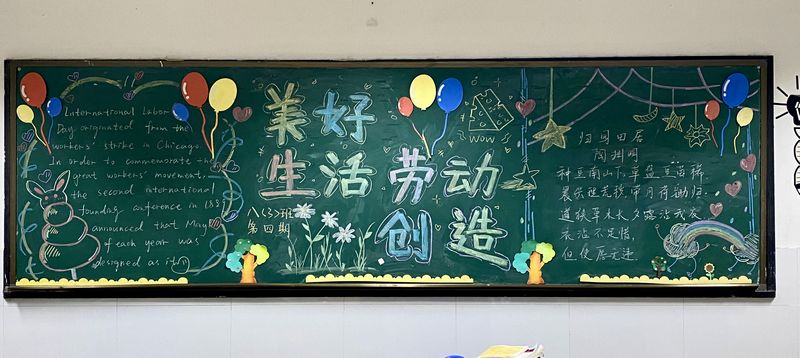 International Labor
Day originated from the
workers' strike in Chicago.
In order to commemorate the
great workers' movement,
the second international
founding conference in 188
announced that May
of each year was
designed as it
美好
生活劳动
创造
八(3)班
第四期
WOW
归园田居
陶渊明
种豆南山下,草盛豆苗稀
晨兴理荒秽,带月荷锄归
道狭草木长,夕露沾我衣
衣沾不足惜,
但使愿无违